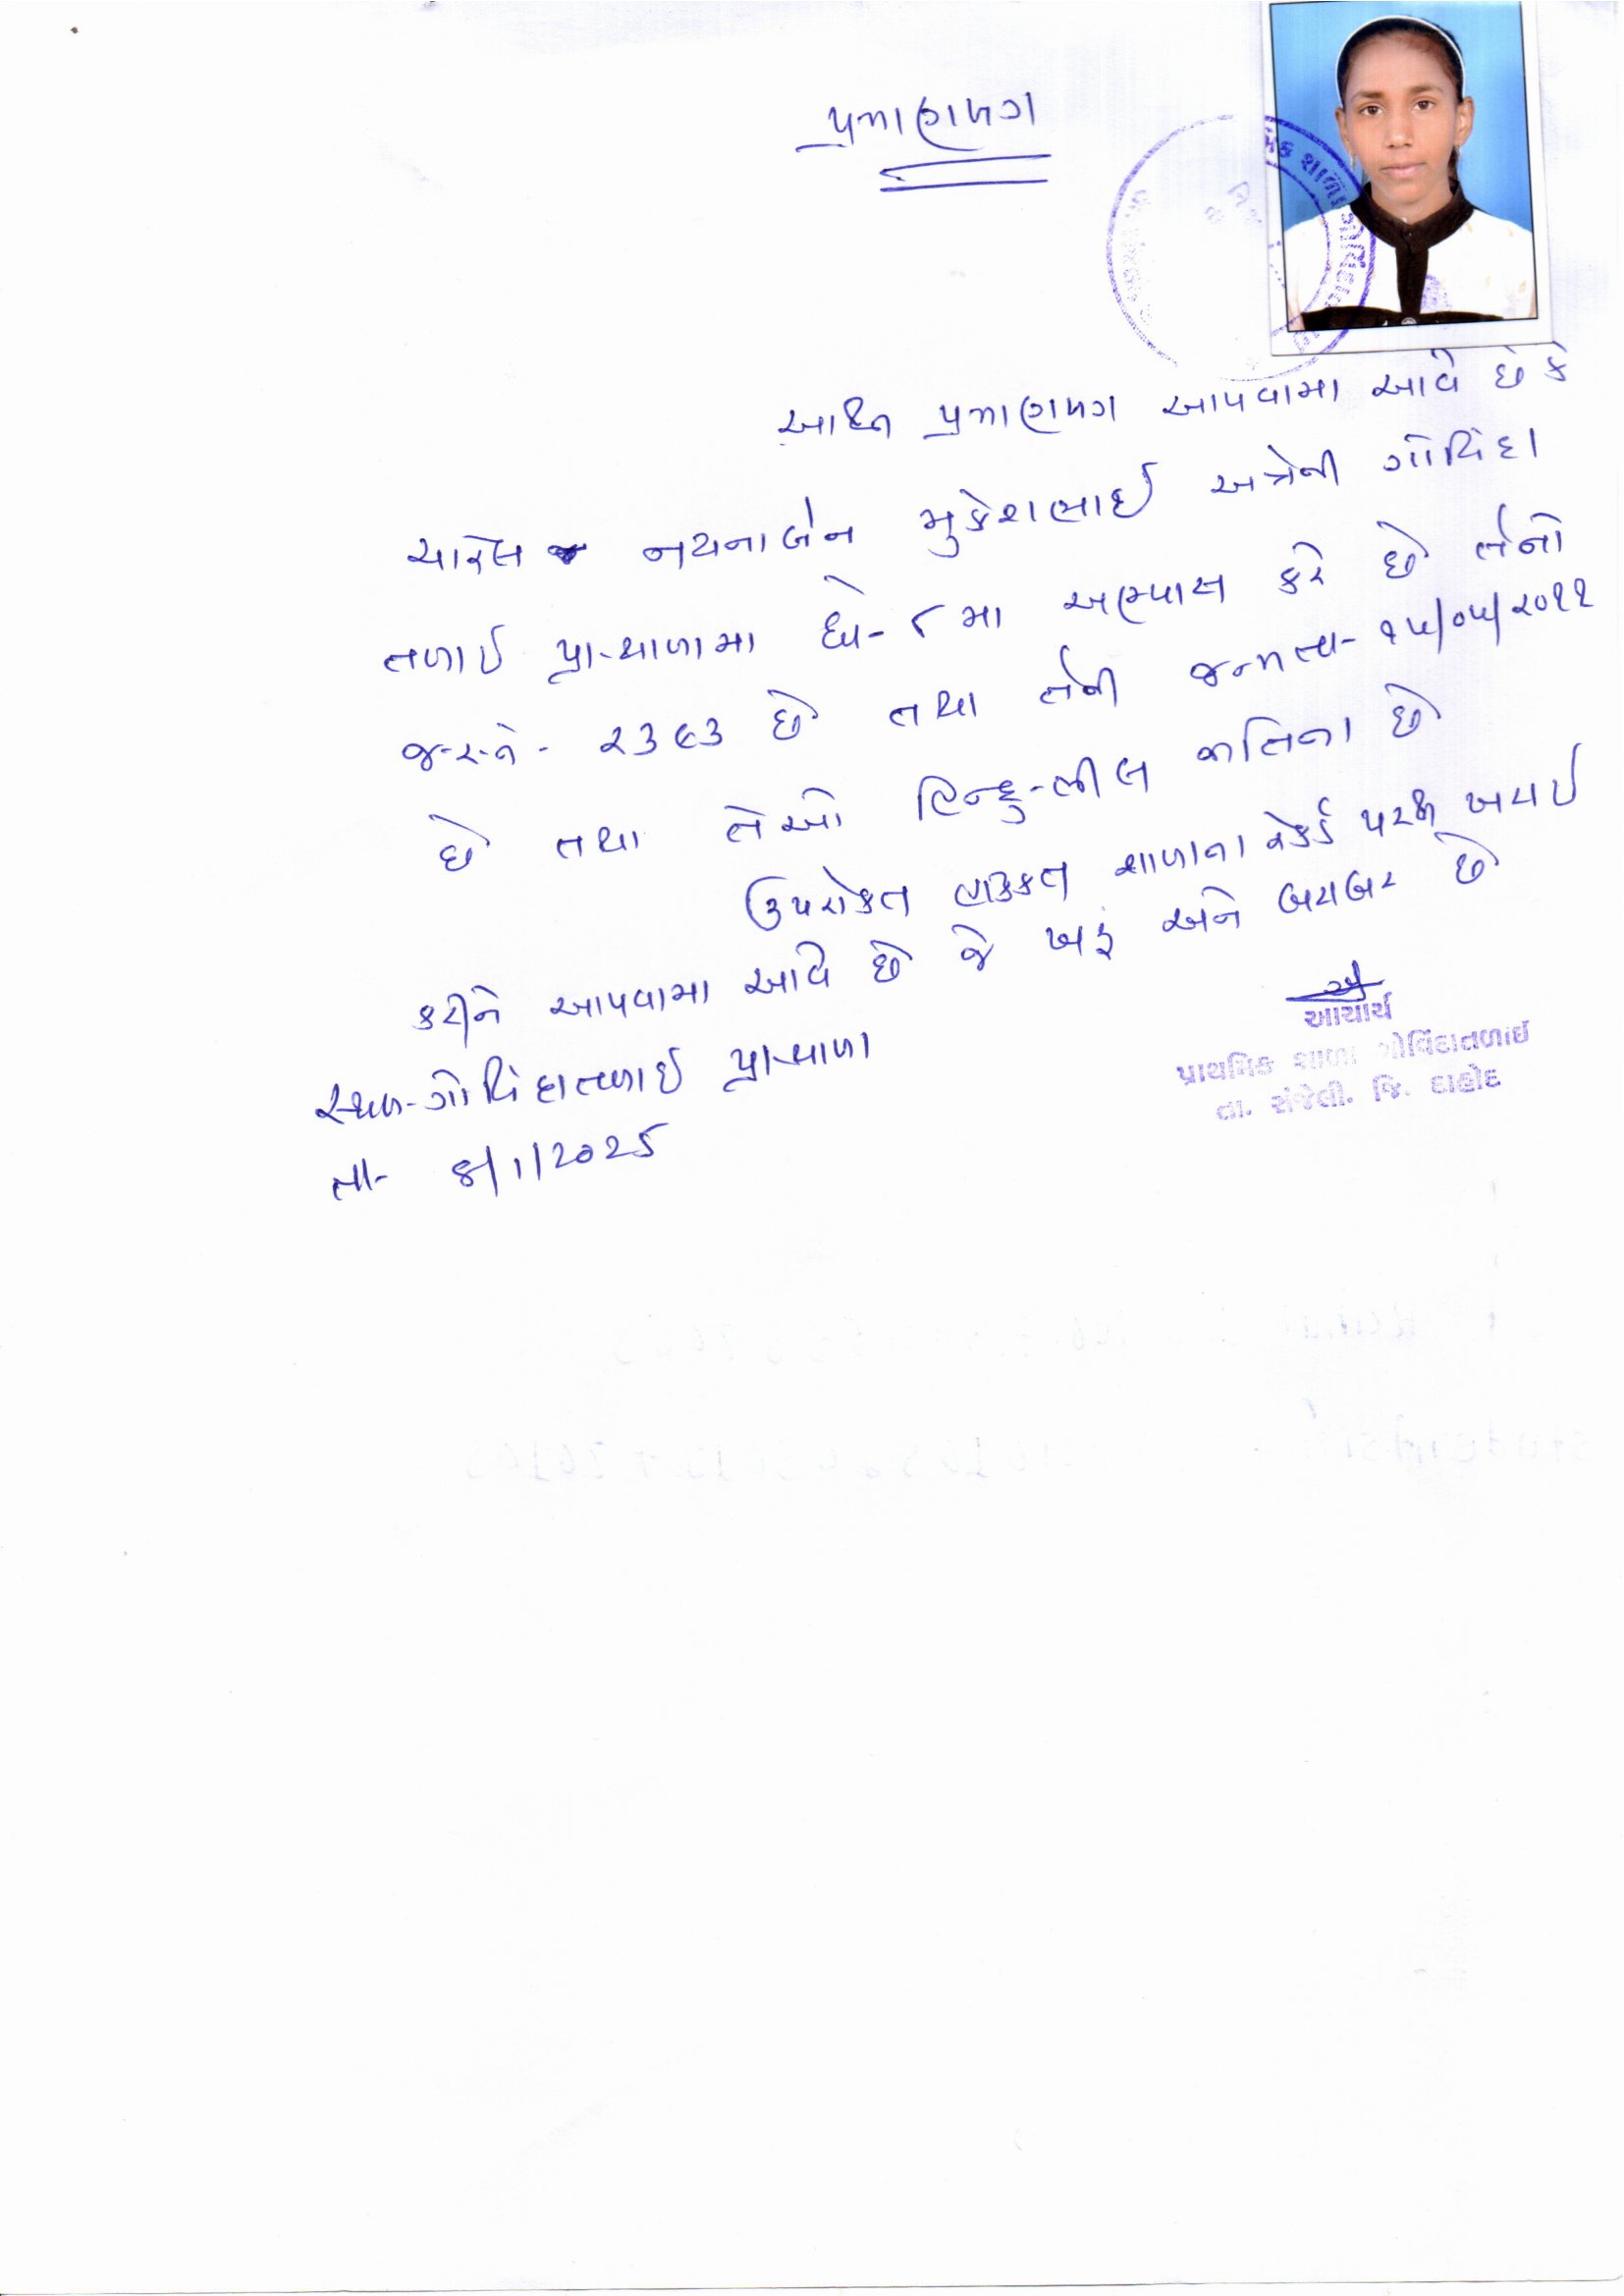 પ્રમાણપત્ર
આથી પ્રમાણપત્ર આપવામા આવે છે કે
ચારેલ નયનાબેન મુકેશભાઈ અત્રેની ગોવિંદા
તળાઈ પ્રા-શાળામા ધો-૮મા અભ્યાસ કરે છે તેનો
જ-ર-નં - ૨૩૯૩ છે તથા તેની જન્મ તા- ૧૫/૦૫/૨૦૧૧
છે તથા તેઓ હિન્દુ-ભીલ જાતિના છે
ઉપરોક્ત હકિકત શાળાના રેકર્ડ પરથી ખરાઈ
કરીને આપવામા આવે છે જે ખરૂં અને બરાબર છે
સ્થળ-ગોવિંદાતળાઈ પ્રા-શાળા
તા- 8/1/2025
આચાર્ય
પ્રાથમિક શાળા ગોવિંદાતળાઈ
તા. સંજેલી. જિ. દાહોદ